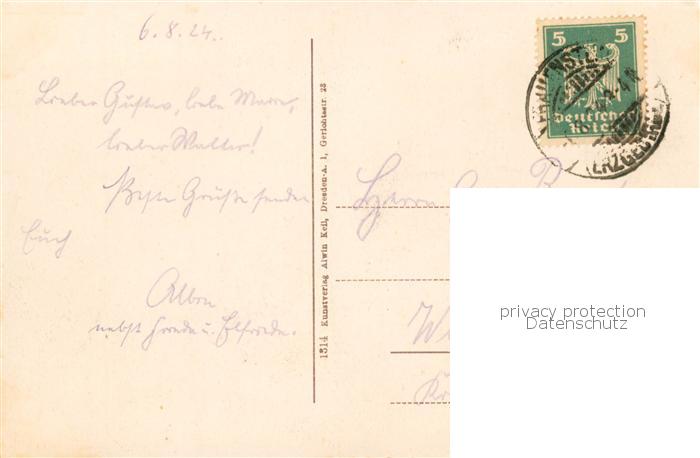 6.8.24.
Lieber Gustav, liebe Marie,
lieber Walter!
Beste Grüße senden
Euch
nebst Frieda u. Elfriede.
1314 Kunstverlag Alwin Keil, Dresden-A. 1, Gerichtsstr. 23
5 5
Deutsches
Reich
FRAUENSTEIN
(ERZGEB.)
Herrn
privacy protection
Datenschutz